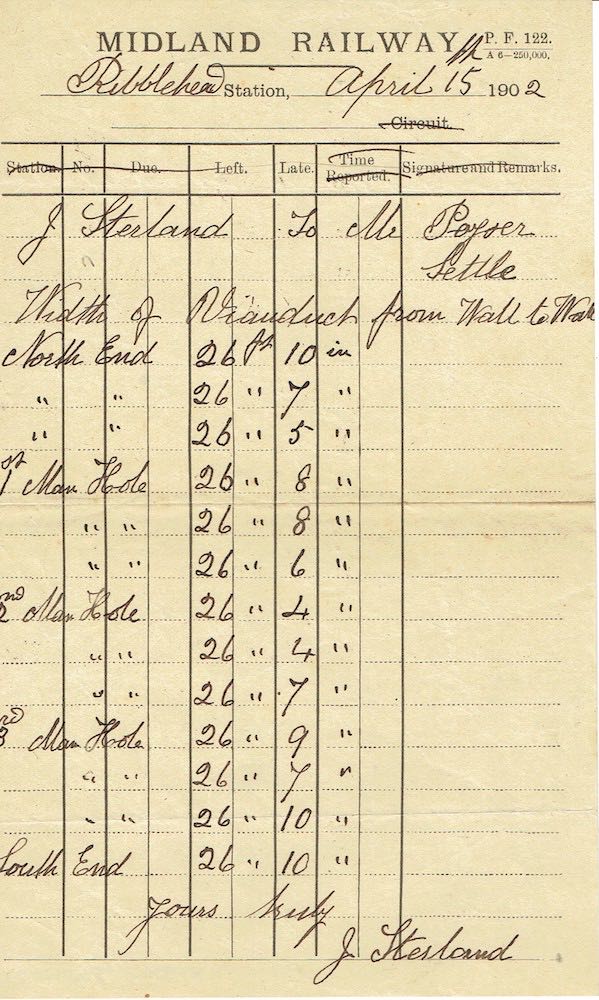 MIDLAND RAILWAY
P. F. 122.
A 6—250,000.
Ribblehead Station, April 15th 1902
Circuit.
Station. No. Due. Left. Late. Time Reported. Signature and Remarks.
J Sterland To Mr Poyser
Settle
Width of Viauduct from Wall to Wall
North End 26 ft 10 in
" " 26 " 7 "
" " 26 " 5 "
1st Man Hole 26 " 8 "
" " 26 " 8 "
" " 26 " 6 "
2nd Man Hole 26 " 4 "
" " 26 " 4 "
" " 26 " 7 "
3rd Man Hole 26 " 9 "
" " 26 " 7 "
" " 26 " 10 "
South End 26 " 10 "
Yours truly
J Sterland